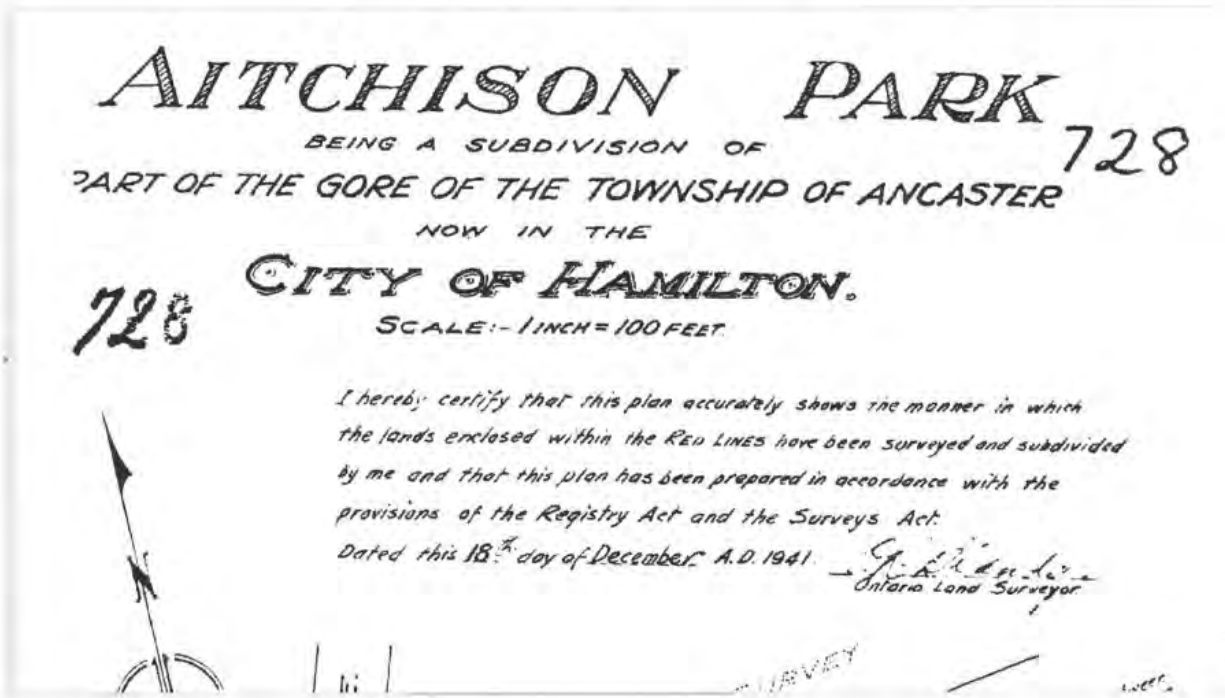 AITCHISON PARK
728
BEING A SUBDIVISION OF
PART OF THE GORE OF THE TOWNSHIP OF ANCASTER
NOW IN THE
CITY OF HAMILTON.
728
SCALE:- 1 INCH = 100 FEET.
I hereby certify that this plan accurately shows the manner in which
the lands enclosed within the RED LINES have been surveyed and subdivided
by me and that this plan has been prepared in accordance with the
provisions of the Registry Act and the Surveys Act.
Dated this 18th day of December A.D. 1941.
Ontario Land Surveyor.
N
SURVEY